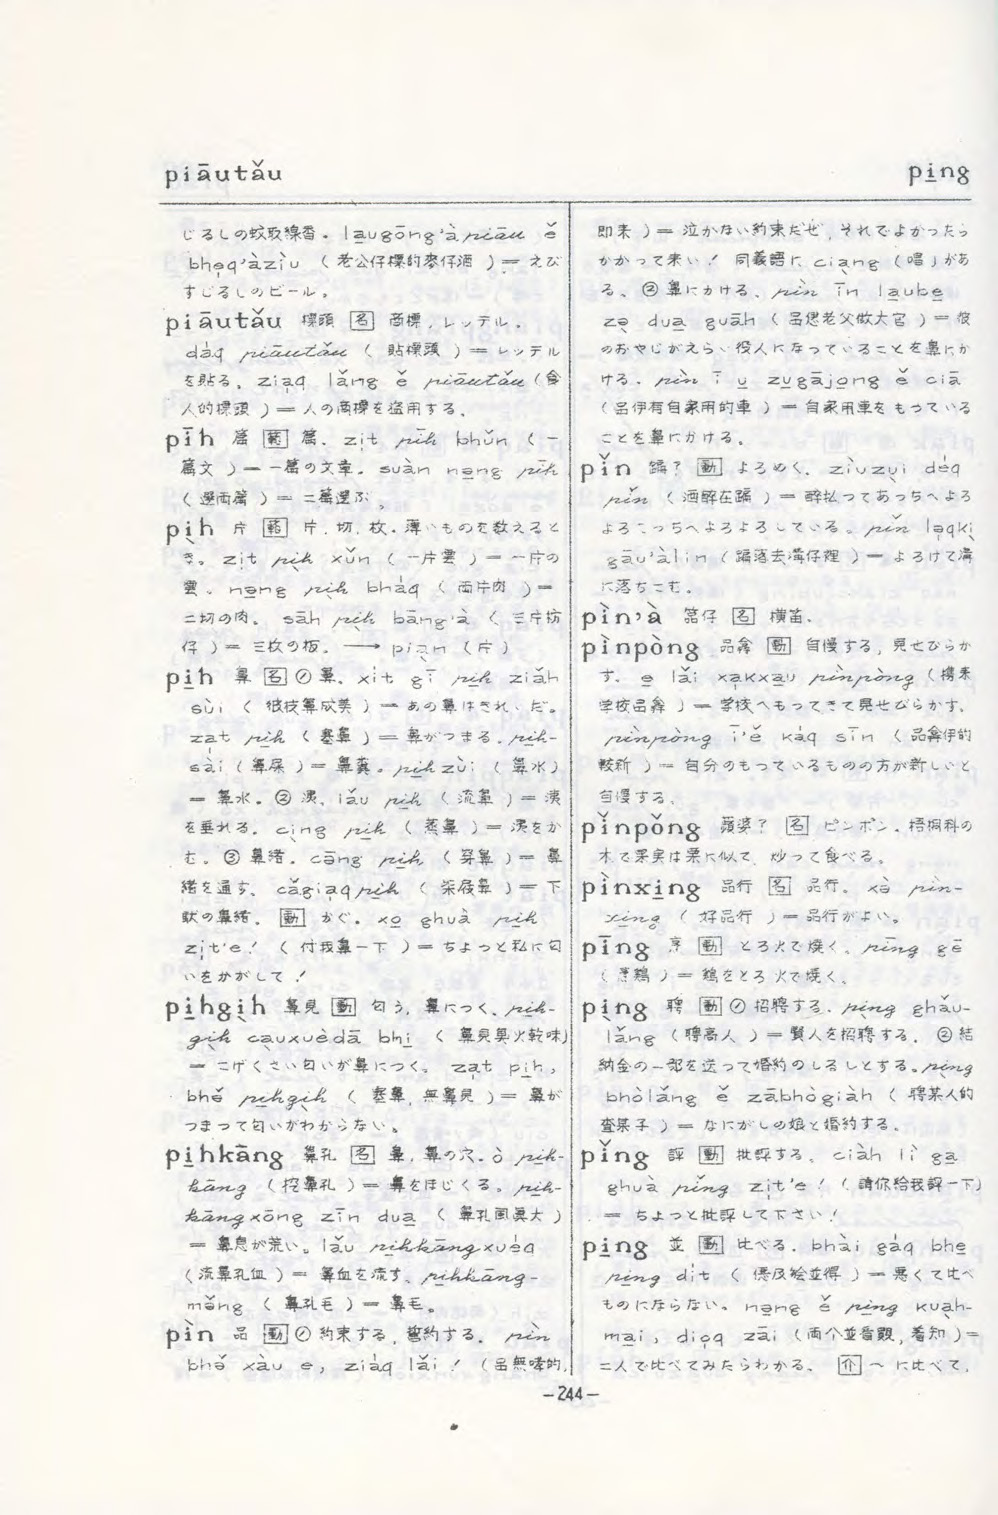 piāutǎu
pi̲ng
じるしの蚊取線香。la̲ugōng'àpiāu ě
bhe̲q'àzi̍u （老公仔標的麥仔酒）= えび
すじるしのビール。
piāutǎu 標頭 [名] 商標，レッテル。
da̍q piāutǎu （貼標頭）= レッテル
を貼る。 lǎng ě piāutǎu（
人的標頭）= 人の商標を盗用する。
pīh 篇 [数] 篇。zi̍t pīh bhǔn （一
篇文）= 一篇の文章。suàn nə̲ng pīh
（選両篇）= 二篇選ぶ。
pịh 片 [数] 片，切，枚。薄いものを数えると
き。zi̍t pịh xǔn （一片雲）= 一片の
雲。nə̲ng pịh bha̍q （両片肉）=
二切の肉。sāh pịh bāng'à （三片枋
仔）= 三枚の板。→ piạn（片）
pi̲h 鼻 [名] ① 鼻。xi̍t gī pi̲h ziǎh
sùi （彼枝鼻成美）= あの鼻はきれいだ。
za̍t pi̲h （塞鼻）= 鼻がつまる。pi̲h-
sài（鼻屎）= 鼻糞。pi̲hzùi （鼻水）
= 鼻水。② 洟。lǎu pi̲h （流鼻）= 洟
を垂れる。cịng pi̲h （ 鼻）= 洟をか
む。③ 鼻緒。cēng pi̲h （穿鼻）= 鼻
緒を通す。cǎgia̍qpi̲h （柴屐鼻）= 下
駄の鼻緒。[動] かぐ。xo̲ ghuà pi̲h
zi̍t'e！（付我鼻一下）= ちょっと私に匂
いをかがして！
pi̲hgịh 鼻見 [動] 匂う，鼻につく。pi̲h-
gịh ca̲uxuèdā bhi̲ （鼻見臭火乾味）
= こげくさい匂いが鼻につく。za̍t pi̲h，
bhě pi̲hgịh （塞鼻，無鼻見）= 鼻が
つまって匂いがわからない。
pi̲hkāng 鼻孔 [名] 鼻，鼻の穴。ò pi̲h-
kāng （挖鼻孔）= 鼻をほじくる。pi̲h-
kāngxōng zīn dua̲ （鼻孔風真大）
= 鼻息が荒い。lǎu pi̲hkāngxuẹq
（流鼻孔血）= 鼻血を流す。pi̲hkāng-
mə̌ng （鼻孔毛）= 鼻毛。
pìn 品 [動] ① 約束する，誓約する。pìn
bhě xàu e，zia̍q lǎi！（品無哮的，
即来）= 泣かない約束だぜ，それでよかったら
かかって来い！ 同義語に ciạng（唱）があ
る。② 鼻にかける。pìn īn la̲ube̲
zə̣ dua̲ guāh（品 老父做大官）= 彼
のおやじがえらい役人になっていることを鼻にか
ける。pìn ī u̲ zu̲gājọng ě ciā
（品伊有自家用的車）= 自家用車をもっている
ことを鼻にかける。
pǐn 蹁？ [動] よろめく。ziùzụi dẹq
pǐn （酒醉在蹁）= 酔払ってあっちへよろ
よろこっちへよろよろしている。pǐn la̍qkị
gāu'àlin（蹁落去溝仔裡）= よろけて溝
に落ちこむ。
pìn'à 品仔 [名] 横笛。
pìnpòng 品 [動] 自慢する，見せびらか
す。e̲ lǎi xa̍kxa̲u pìnpòng（携来
学校品 ）= 学校へもってきて見せびらかす。
pìnpòng ī'ě kạq sīn （品 伊的
較新）= 自分のもっているものの方が新しいと
自慢する。
pǐnpǒng 蘋婆？ [名] ピンポン。梧桐科の
木で果実は栗に似て，炒って食べる。
pìnxi̲ng 品行 [名] 品行。xə̀ pìn-
xi̲ng （好品行）= 品行がよい。
pīng 烹 [動] とろ火で焼く。pīng gē
（烹鶏）= 鶏をとろ火で焼く。
pịng 聘 [動] ① 招聘する。pịng ghǎu-
lǎng （聘高人）= 賢人を招聘する。② 結
納金の一部を送って婚約のしるしとする。pịng
bhòlǎng ě zābhògiàh （聘某人的
查某子）= なにがしの娘と婚約する。
pǐng 評 [動] 批評する。ciàh lì gạ
ghuà pǐng zi̍t'e！（請你給我評一下）
= ちょっと批評して下さい！
pi̲ng 並 [動] 比べる。bhài gạq bhe̲
pi̲ng di̍t （ 及 並得）= 悪くて比べ
ものにならない。nə̲ng ě pi̲ng kuạh-
mai，dio̍q zāi （両个並看覷，着知）=
二人で比べてみたらわかる。[介] 〜に比べて。
— 244 —